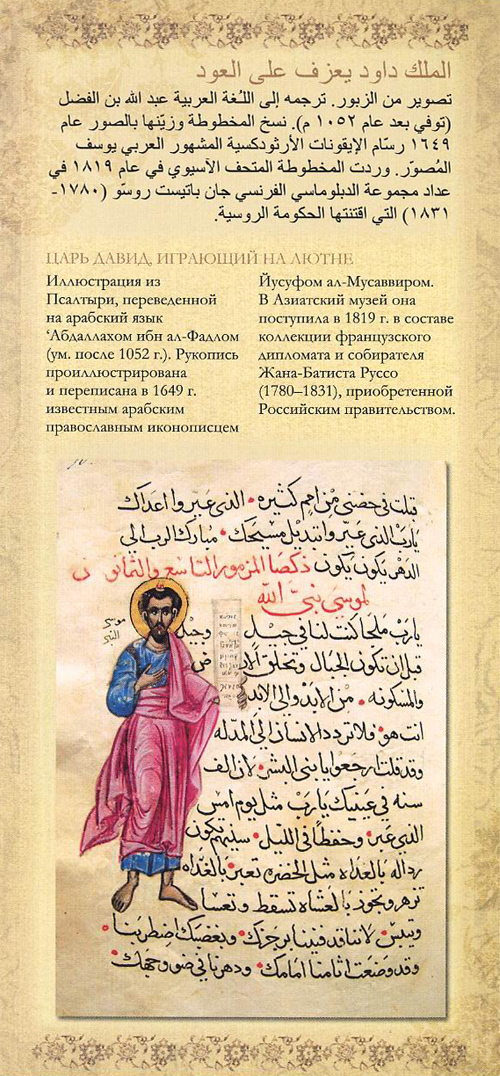 الملك داود يعزف على العود
تصوير من الزبور. ترجمه إلى اللـغة العربية عبد الله بن الفضل
(توفي بعد عام ١٠٥٢ م). نسخ المخطوطة وزيّنها بالصور عام
١٦٤٩ رسّام الإيقونات الأرثودكسية المشهور العربي يوسف
المُصوّر. وردت المخطوطة المتحف الآسيوي في عام ١٨١٩ في
عداد مجموعة الدبلوماسي الفرنسي جان باتيست روسّو (١٧٨٠-
١٨٣١) التي اقتنتها الحكومة الروسية.
ЦАРЬ ДАВИД, ИГРАЮЩИЙ НА ЛЮТНЕ
Иллюстрация из
Псалтыри, переведенной
на арабский язык
‘Абдаллахом ибн ал-Фадлом
(ум. после 1052 г.). Рукопись
проиллюстрирована
и переписана в 1649 г.
известным арабским
православным иконописцем
Йусуфом ал-Мусаввиром.
В Азиатский музей она
поступила в 1819 г. в составе
коллекции французского
дипломата и собирателя
Жана-Батиста Руссо
(1780–1831), приобретенной
Российским правительством.
قبلت في حضني من امم كثيره • الذي عيروا اعداك
يارب الذي عيروا تبديل مسيحك • مبارك الرب الي
الدهر يكون يكون ذكصا المزمور التاسع والثمانون
لموسي نبيّ الله
موسي
النبي
يارب ملجا كنت لنا في جيل وجيل
قبل ان تكون الجبال وتخلق الارض
والمسكونه • من الابد والي الابد
انت هو • فلا تردد الانسان الي المذله
وقد قلت ارجعوا يا بني البشر • لان الف
سنه في عينيك يارب مثل يوم امس
الذي عبر • وحفظا في الليل • سنيهم تكون
رذاله بالغداه مثل الخضره تعبر • بالغداه
تزهر وتجوز بالعشاه تسقط وتعسا
وتيبس • لاننا قد فنينا برجزك • وبغضبك اضطربنا •
وقد وضعت اثامنا امامك • ودهرنا في ضو وجهك •